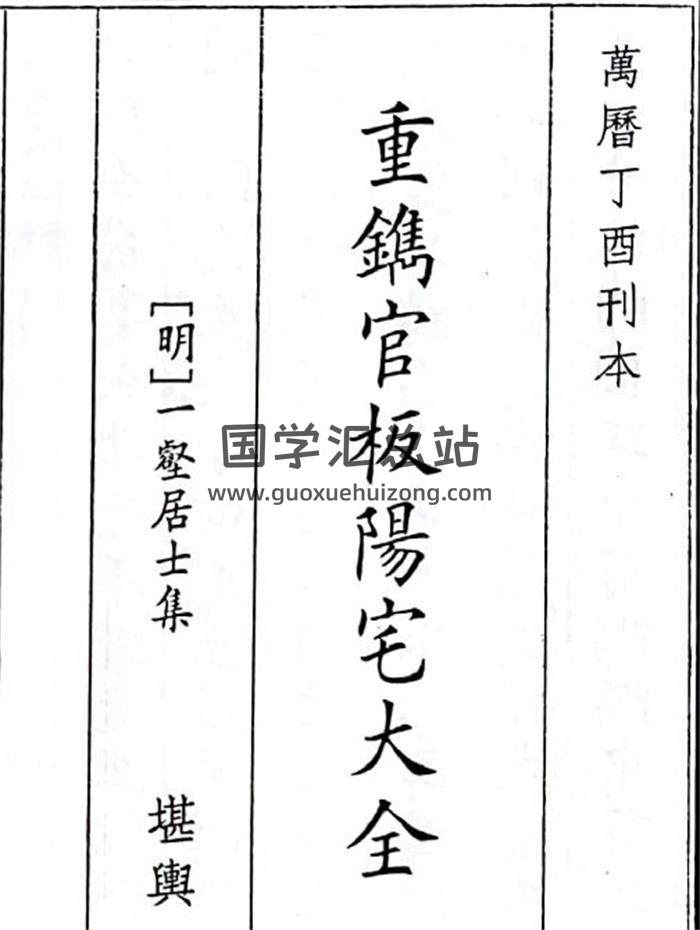 萬曆丁酉刊本
重鐫官板陽宅大全
[明]一壑居士集
堪輿
国学汇总站
www.guoxuehuizong.com